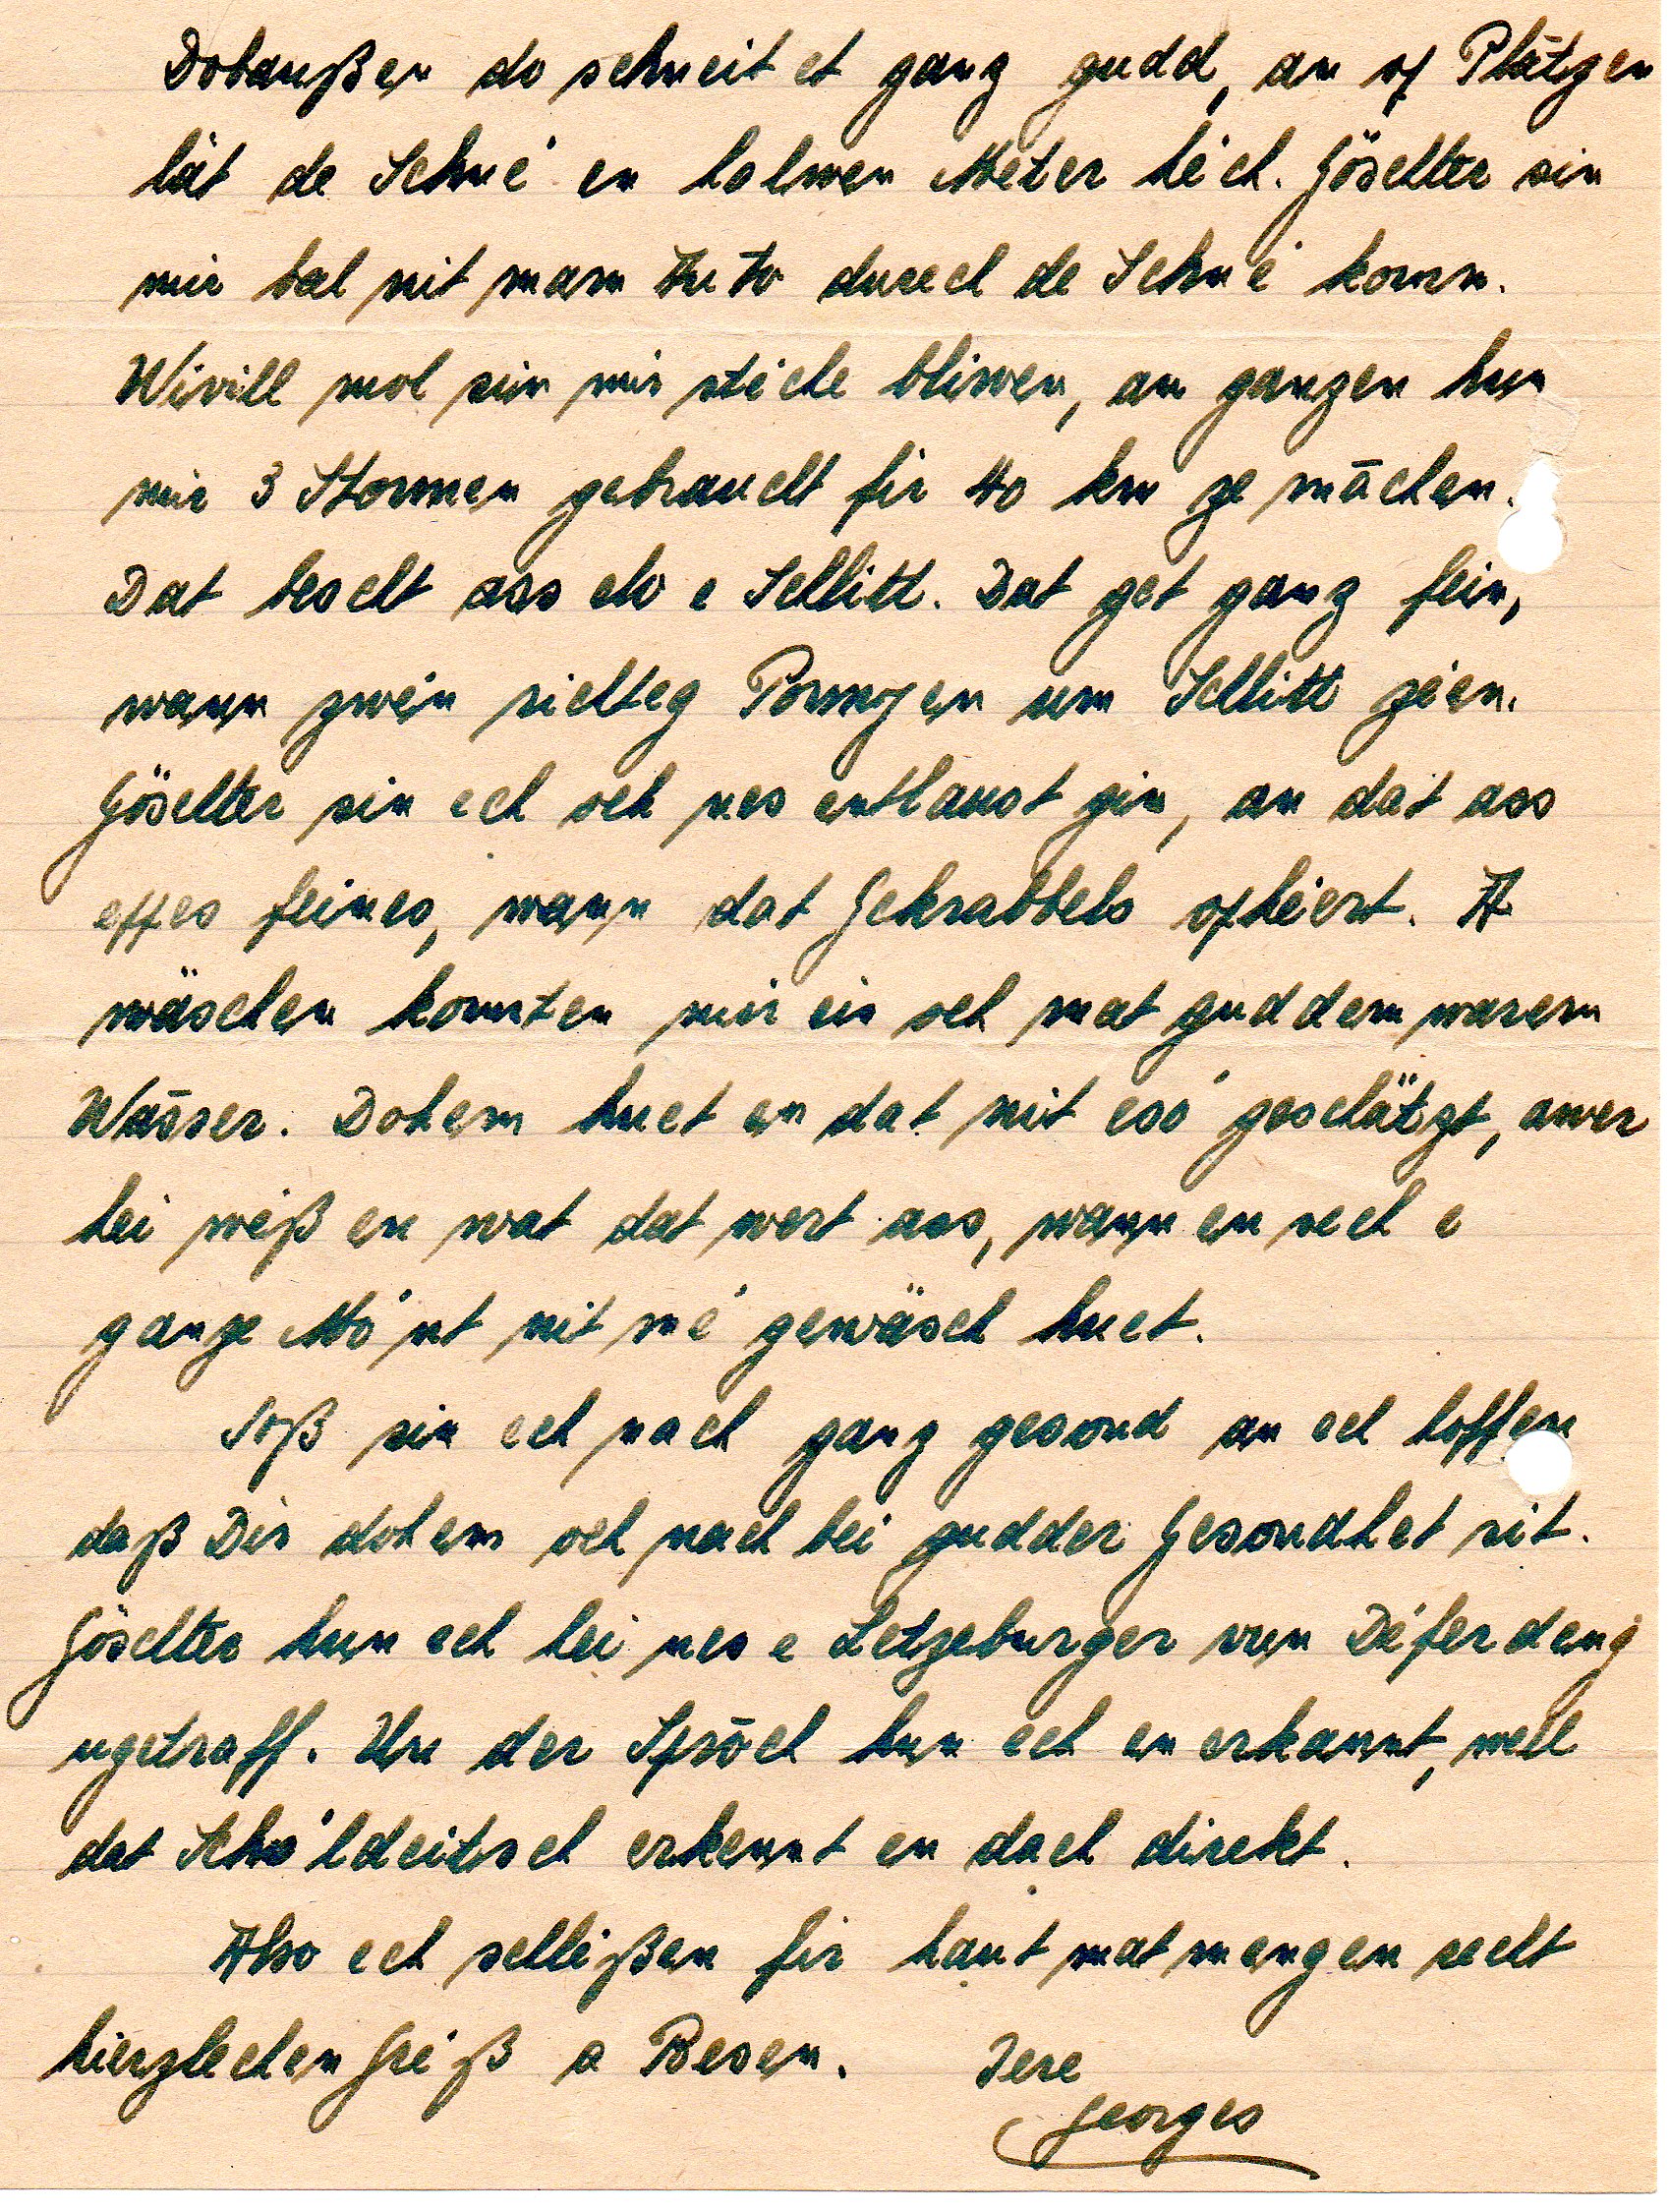 Dobaußen do schneit et ganz gudd, an of Plätzen
lät de Schné en halwen Meter héch. Göschter sin
mir bal nit mam Auto duerch de Schné komm.
Wivill mol sin mir stieche bliwen, am ganzen hun
mir 3 Stonnen gebraucht fir 40 km ze māchen.
Dat bescht ass eb e Schlitt. Dat get ganz fein,
wann zwén richteg Ponnyen um Schlitt zéen.
Göschter sin ech och nes entlaust gin, an dat ass
eppes feines, wann dat Gekrabbels ophéert. A
wäschen konnten mir eis och mat guddem warem
Wāsser. Dohem huet en dat nit esó geschätzt, awer
hei wéß en wat dat wert ass, wann en sech e
ganze Mónt nit mé gewäsch huet.
Soß sin ech nach ganz gesond an ech hoffen
daß Dir dohem och nach bei gudder Gesondhet sit.
Göschter hun ech hei nes e Letzeburger vun Déferdeng
ugetraff. Un der Sprōch hun ech en erkannt, well
dat Schóldeitsch erkennt en dach direkt.
Also ech schléßen fir haut mat mengen recht
hierzlechen Gréß a Besen. Iere
Georges